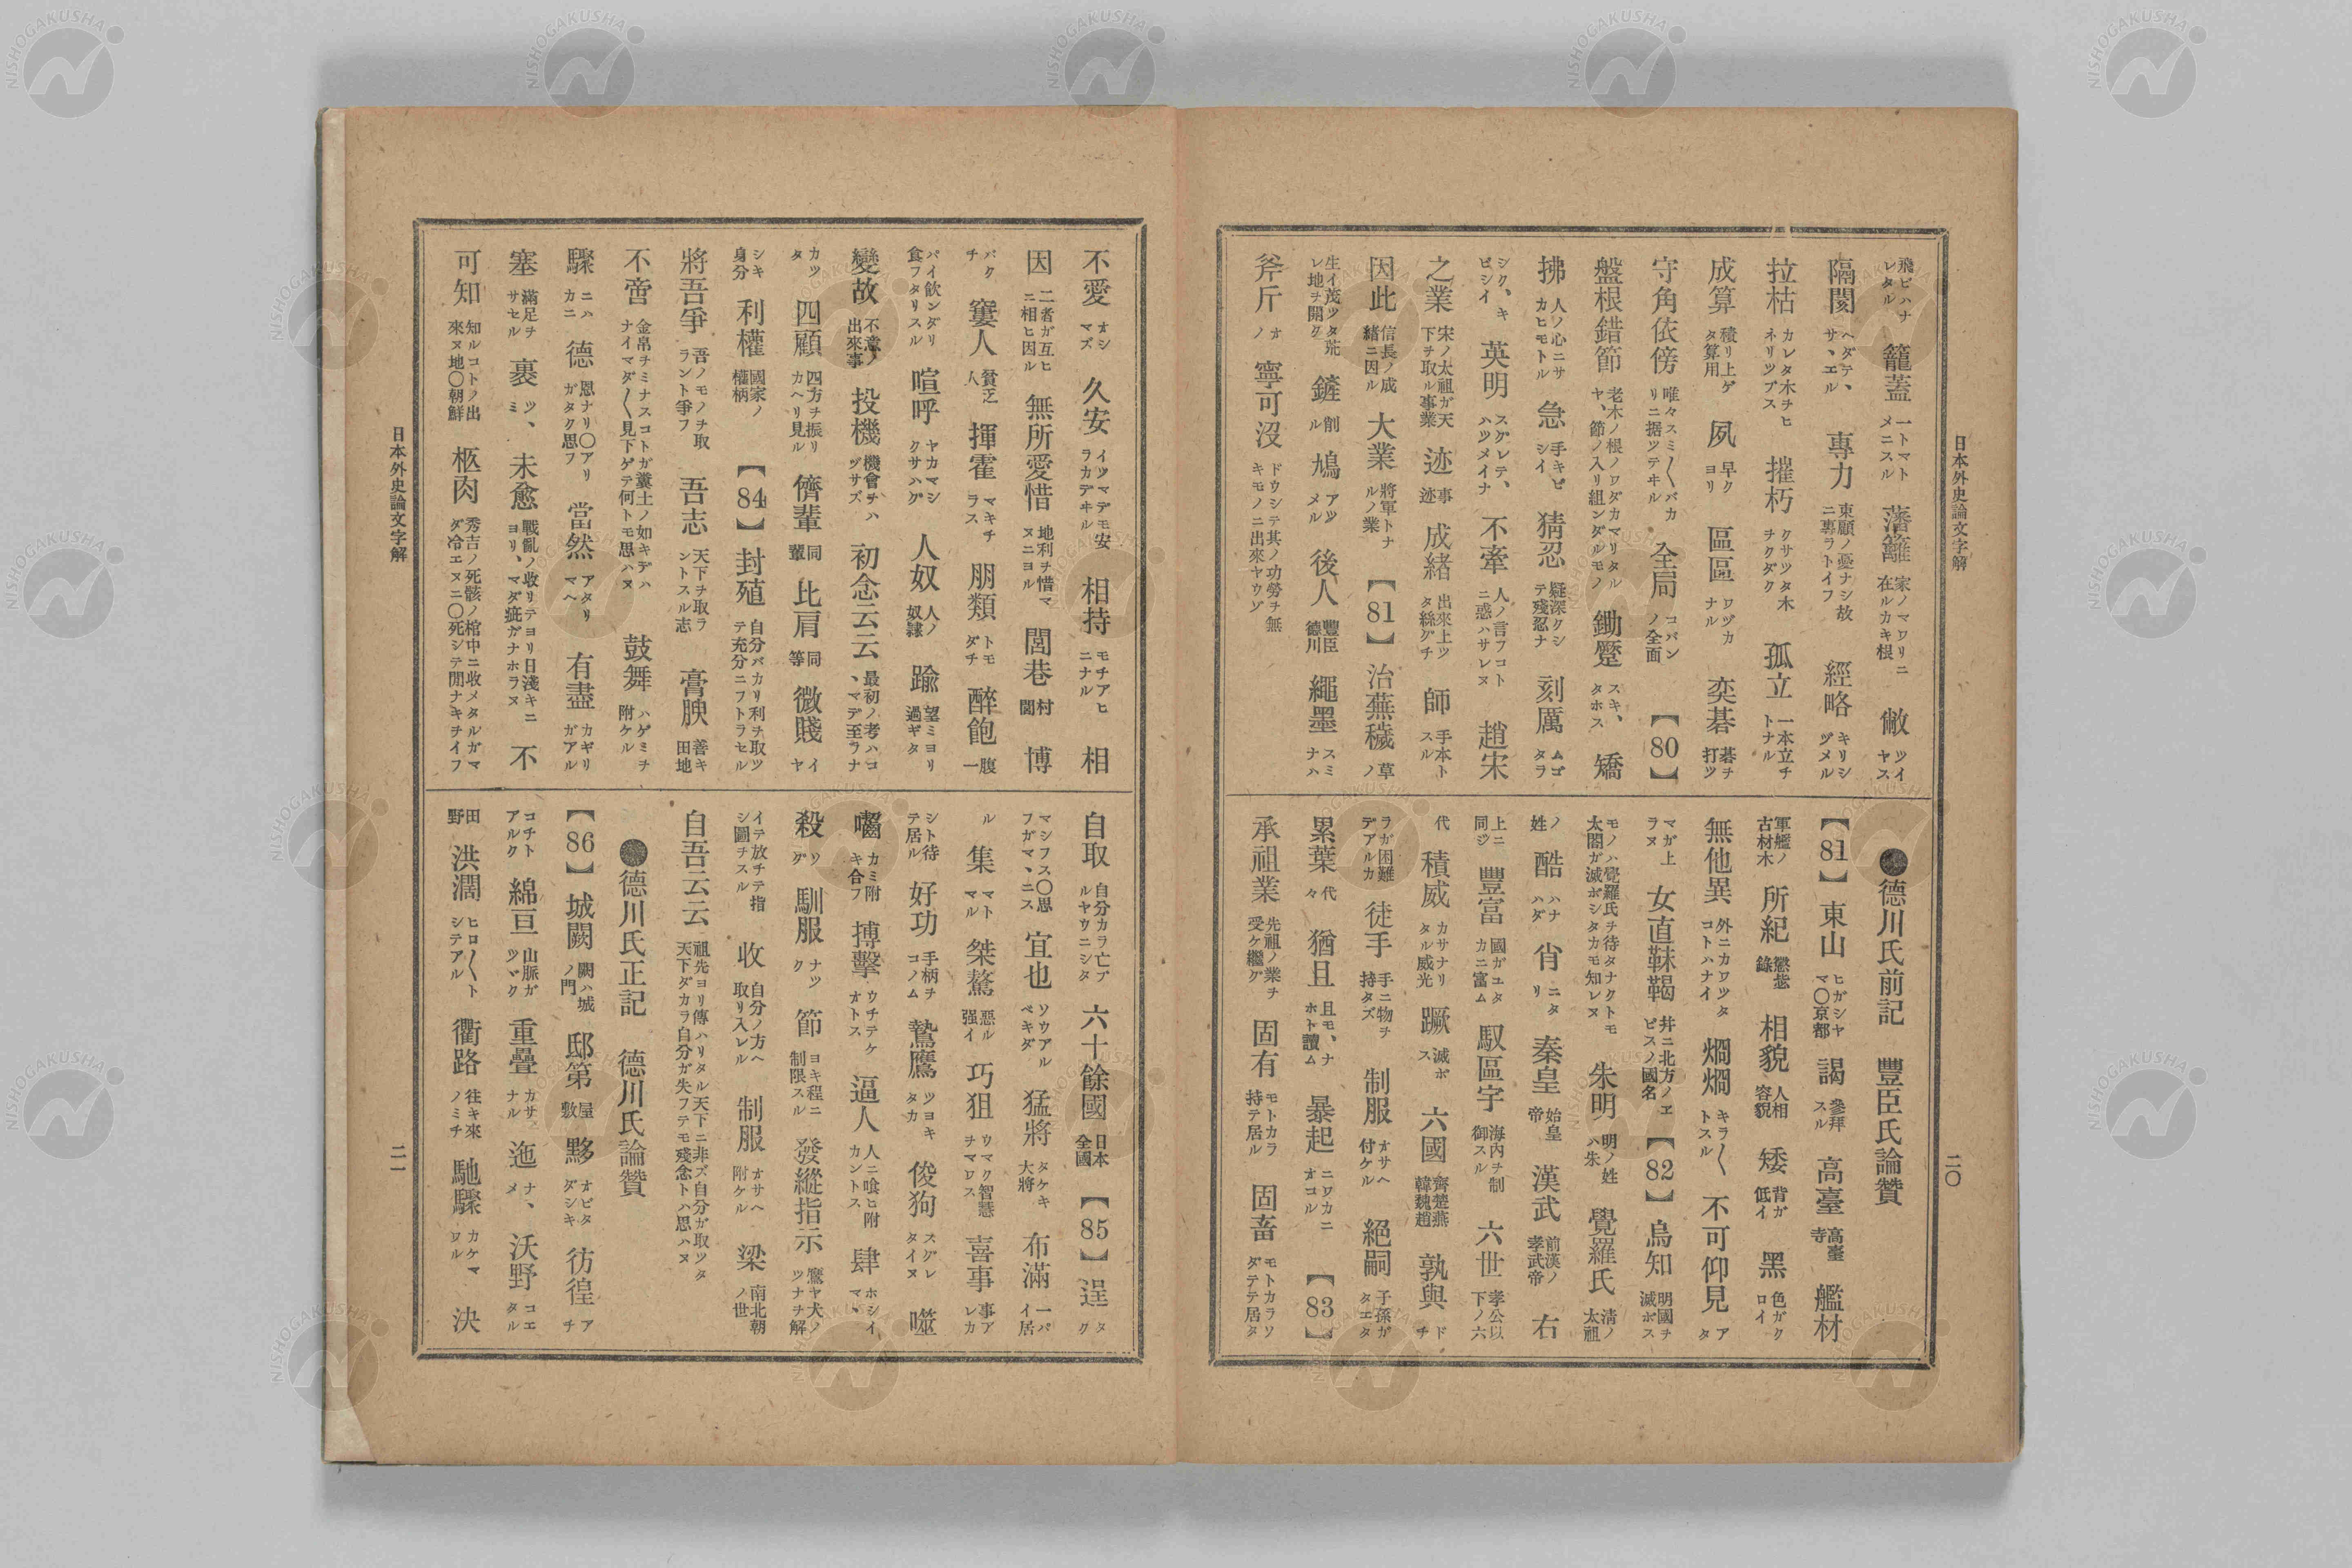 日本外史論文字解
二〇
飛ビハナレタル 籠蓋 一トマトメニスル 藩籬 家ノマワリニ在ルカキ根 敝 ツイヤス
隔閡 ヘダテ、サ、エル 專力 東顧ノ憂ナシ故ニ專ラトイフ 經略 キリシヅメル
拉枯 カレタ木チヒネリツブス 摧朽 クサツタ木チクダク 孤立 一本立チトナル
成算 積リ上ゲタ算用 夙 早クヨリ 區區 ワヅカナル 奕碁 碁チ打ツ
守角依傍 唯々スミ〳〵バカリニ据ツテヰル 全局 コバンノ全面 【80】
盤根錯節 老木ノ根ノワダカマリタルヤ、節ノ入リ組ンダルモノ 鋤躄 スキ、タホス 矯
拂 人ノ心ニサカヒモトル 急 手キビシイ 猜忍 疑深クシテ殘忍ナ 刻厲 ムゴタラ
シク、キビシイ 英明 スグレテ、ハツメイナ 不牽 人ノ言フコトニ惑ハサレヌ 趙宋
之業 宋ノ太祖ガ天下チ取ル事業 迹 事迹 成緒 出來上ツタ絲グチ 師 手本トスル
因此 信長ノ成緒ニ因ル 大業 將軍トナルノ業 【81】 治蕪穢 草ノ
生イ茂ツタ荒レ地チ開ク 鏟 削ル 鳩 アツメル 後人 豐臣德川 繩墨 スミナハ
斧斤 オノ 寧可没 ドウシテ其ノ功勞チ無キモノニ出來ヤウゾ
●德川氏前記 豐臣氏論贊
【81】 東山 ヒガシヤマ〇京都 謁 參拜スル 高臺 高臺寺 艦材
軍艦ノ古材木 所紀 懲毖錄 相貌 人相容貌 矮 背ガ低イ 黑 色ガクロイ
無他異 外ニカワツタコトハナイ 烱烱 キラ〳〵トスル 不可仰見 アタ
マガ上ラヌ 女直靺鞨 井ニ北方ノエビスノ國名 【82】 烏知 明國チ滅ボス
モノハ覺羅氏チ待タナクトモ太閤ガ滅ボシタカモ知レヌ 朱明 明ノ姓ハ朱 覺羅氏 清ノ太祖
ノ姓 酷 ハナハダ 肖 ニタリ 秦皇 始皇帝 漢武 前漢ノ孝武帝 右
上ニ同ジ 豐富 國ガユタカニ富ム 馭區宇 海内チ制御スル 六世 孝公以下ノ六
代 積威 カサナリタル威光 蹶 滅ボス 六國 齊楚燕韓魏趙 孰與 ドチ
ラガ困難デアルカ 徒手 手ニ物チ持タズ 制服 オサヘ付ケル 絕嗣 子孫ガタエタ
累葉 代々 猶且 且モ、ナホト讀ム 暴起 ニワカニオコル 【83】
承祖業 先祖ノ業チ受ケ繼グ 固有 モトカラ持テ居ル 固畜 モトカラソダテテ居タ
不愛 オシマズ 久安 イツマデモ安ラカデヰル 相持 モチアヒニナル 相
因 二者ガ互ヒニ相ヒ因ル 無所愛惜 地利チ惜マヌニヨル 閭巷 村閭 博
バクチ 窶人 貧乏人 揮霍 マキチラス 朋類 トモダチ 醉飽 腹一
パイ飲ンダリ食フタリスル 喧呼 ヤカマシクサハグ 人奴 人ノ奴隷 踰 望ミヨリ過ギタ
變故 不意ノ出來事 投機 機會チハヅサズ 初念云云 最初ノ考ハコ、マデ至ラナ
カツタ 四顧 四方チ振リカヘリ見ル 儕輩 同輩 比肩 同等 微賤 イヤ
シキ身分 利權 國家ノ權柄 【84】 封殖 自分バカリ利チ取ツテ充分ニフトラセル
將吾爭 吾ノモノチ取ラント爭フ 吾志 天下チ取ラントスル志 膏腴 善キ田地
不啻 金帛チミナスコトガ糞土ノ如キデハナイマダ〳〵見下ゲテ何トモ思ハヌ 鼓舞 ハゲミチ附ケル
驟 ニハカニ 德 恩ナリ〇アリガタク思フ 當然 アタリマヘ 有盡 カギリガアル
塞 滿足チサセル 裹 ツ、ミ 未愈 戰亂ノ收リテヨリ日淺キニヨリ、マダ疵ガナホラヌ 不
可知 知ルコトノ出來ヌ地〇朝鮮 柩肉 秀吉ノ死骸ノ棺中ニ收メタルガマダ冷エヌニ〇死シテ間ナキチイフ
自取 自分カラ亡ブルヤウニシタ 六十餘國 日本全國 【85】 逞 タク
マシフス〇思フガマ、ニス 宜也 ソウアルベキダ 猛將 タケキ大將 布滿 一パイ居
ル 集 マトマル 桀驁 惡ル强イ 巧狙 ウマク智慧チマワス 喜事 事アレカ
シト待テ居ル 好功 手柄チコノム 鷙鷹 ツヨキタカ 俊狗 スグレタイヌ 噬
囓 カミ附キ合フ 搏擊 ウチテケオトス 逼人 人ニ喰ヒ附カントス 肆 ホシイマ、
殺 ソグ 馴服 ナツク 節 ヨキ程ニ制限スル 發縱指示 鷹ヤ犬ノツナチ解
イテ放チテ指シ圖チスル 收 自分ノ方ヘ取リ入レル 制服 オサヘ附ケル 梁 南北朝ノ世
自吾云云 祖先ヨリ傳ハリタル天下ニ非ズ自分ガ取ツタ天下ダカラ自分ガ失フテモ殘念トハ思ハヌ
●德川氏正記 德川氏論贊
【86】 城闕 闕ハ城ノ門 邸第 屋敷 夥 オビタダシキ 彷徨 アチ
コチトアルク 綿亘 山脈ガツヾク 重疊 カサナル 迤 ナ、メ 沃野 コエタル
田野 洪濶 ヒロ〳〵トシテアル 衢路 往キ來ノミチ 馳驟 カケマワル 決
日本外史論文字解
二一